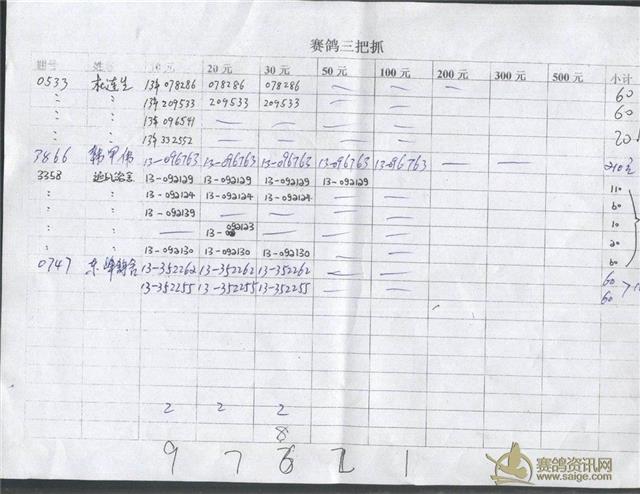 赛鸽三把抓
棚号 姓名 10元 20元 30元 50元 100元 200元 300元 500元 小计
0533 13年078286 078286 078286 — — — 60
〃 〃 13年209533 209533 209533 — — 60
〃 〃 13年096541 — — — —
〃 〃 13年332552 — — — — 20
3866 韩甲伟 13-096763 13-096763 13-096763 13-096763 13-096763 — — 210元
3358 13-092129 13-092129 13-092129 13-092129 110
〃 〃 13-092124 13-092124 13-092124 — — 60
〃 〃 13-092139 — — — — 10
〃 〃 — 13-092123 — — — 20
〃 〃 13-092130 13-092130 13-092130 — — 60
0747 13-352262 13-352262 13-352262 — — 60
13-352255 13-352255 13-352255 — — 60
2 2 2
8
9 7 6 2 1
赛鸽资讯网
www.saige.com